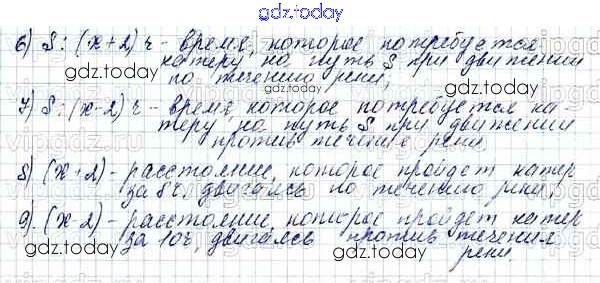 gdz.today
6) S : (x+2) ч - время, которое потребуется
катеру на путь S при движении
по течению реки;
gdz.today
7) S : (x-2) ч - время, которое потребуется ка-
теру на путь S при движении
против течения реки.
gdz.today
8) (x+2) - расстояние, которое пройдет катер
за 8ч, двигаясь по течению реки;
gdz.today
9). (x-2) - расстояние, которое пройдет катер
за 10ч, двигаясь против течения
реки.
gdz.today gdz.today